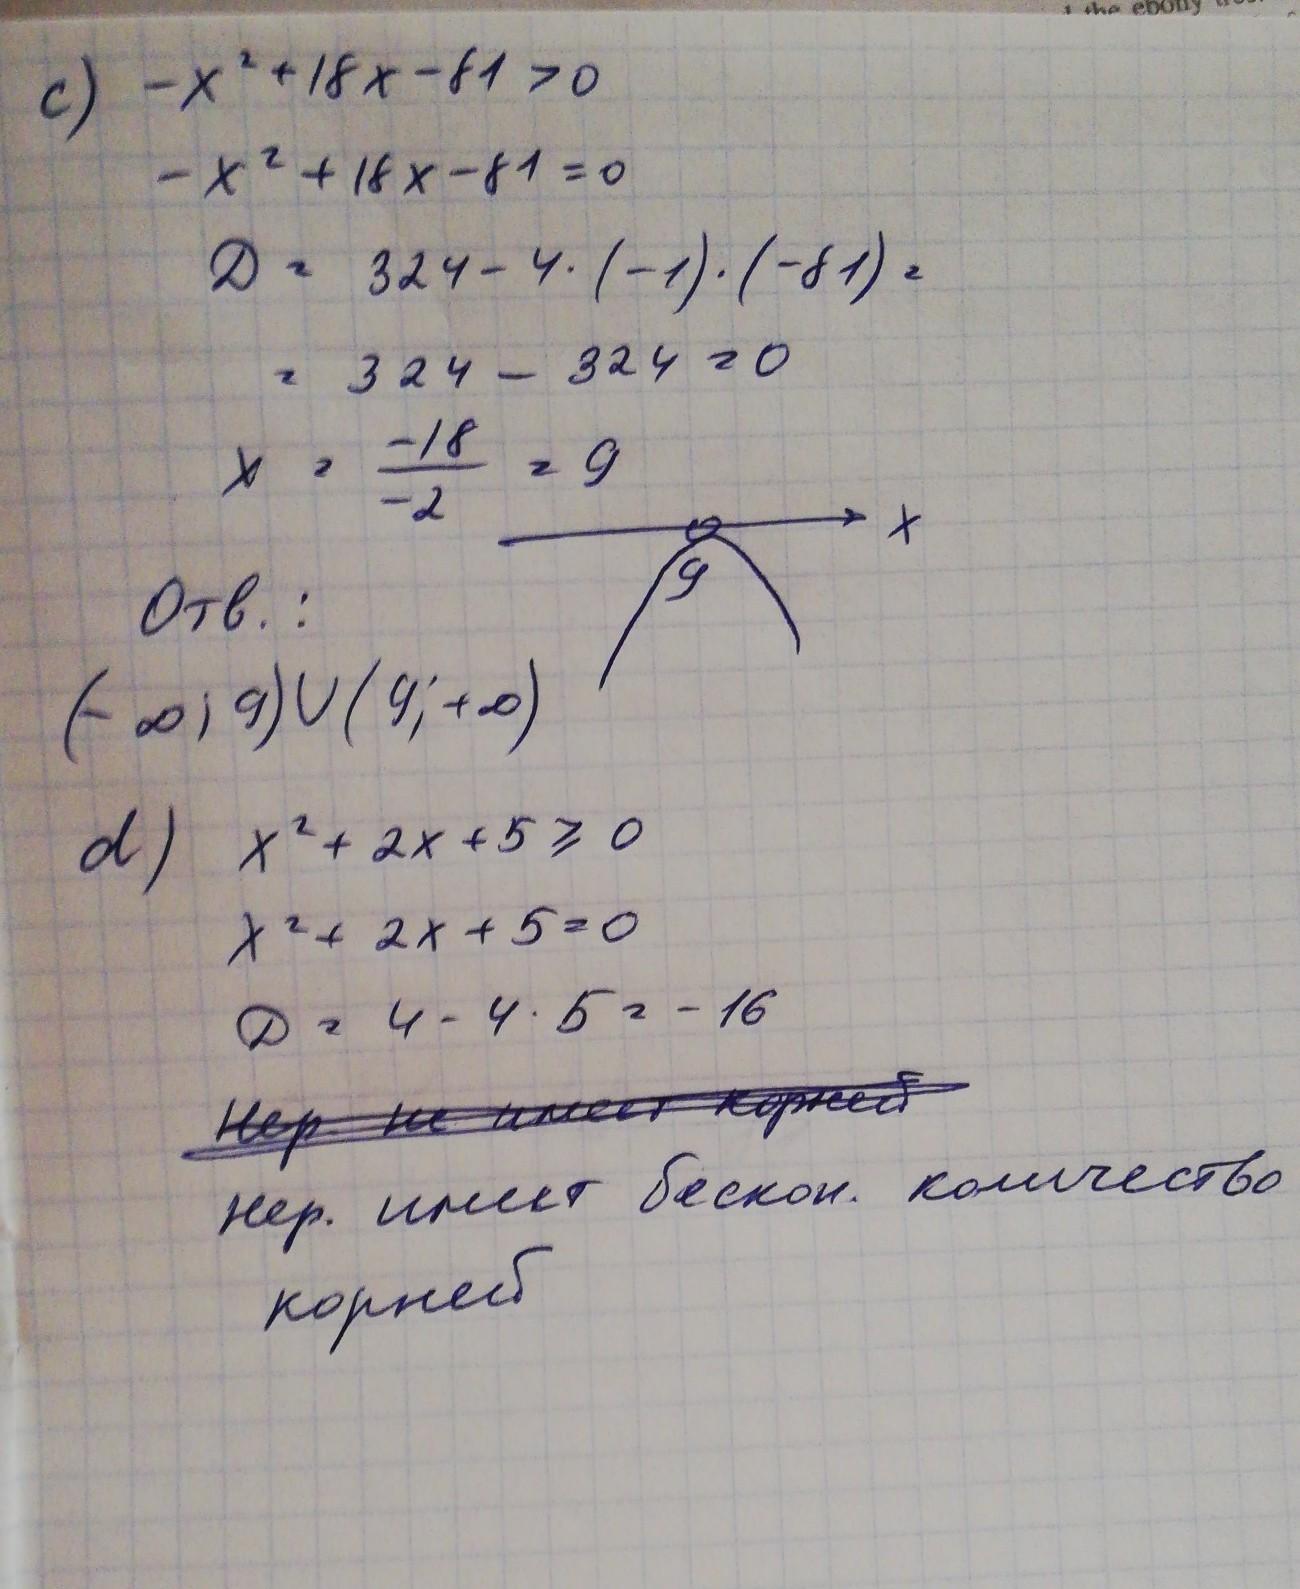 the ebony
c) -x² + 18x - 81 > 0
-x² + 18x - 81 = 0
D = 324 - 4 · (-1) · (-81) =
= 324 - 324 = 0
x = -18/-2 = 9
x
9
Отв.:
(-∞; 9) ∪ (9; +∞)
d) x² + 2x + 5 ≥ 0
x² + 2x + 5 = 0
D = 4 - 4 · 5 = -16
Нер. не имеет корней
Нер. имеет бескон. количество
корней